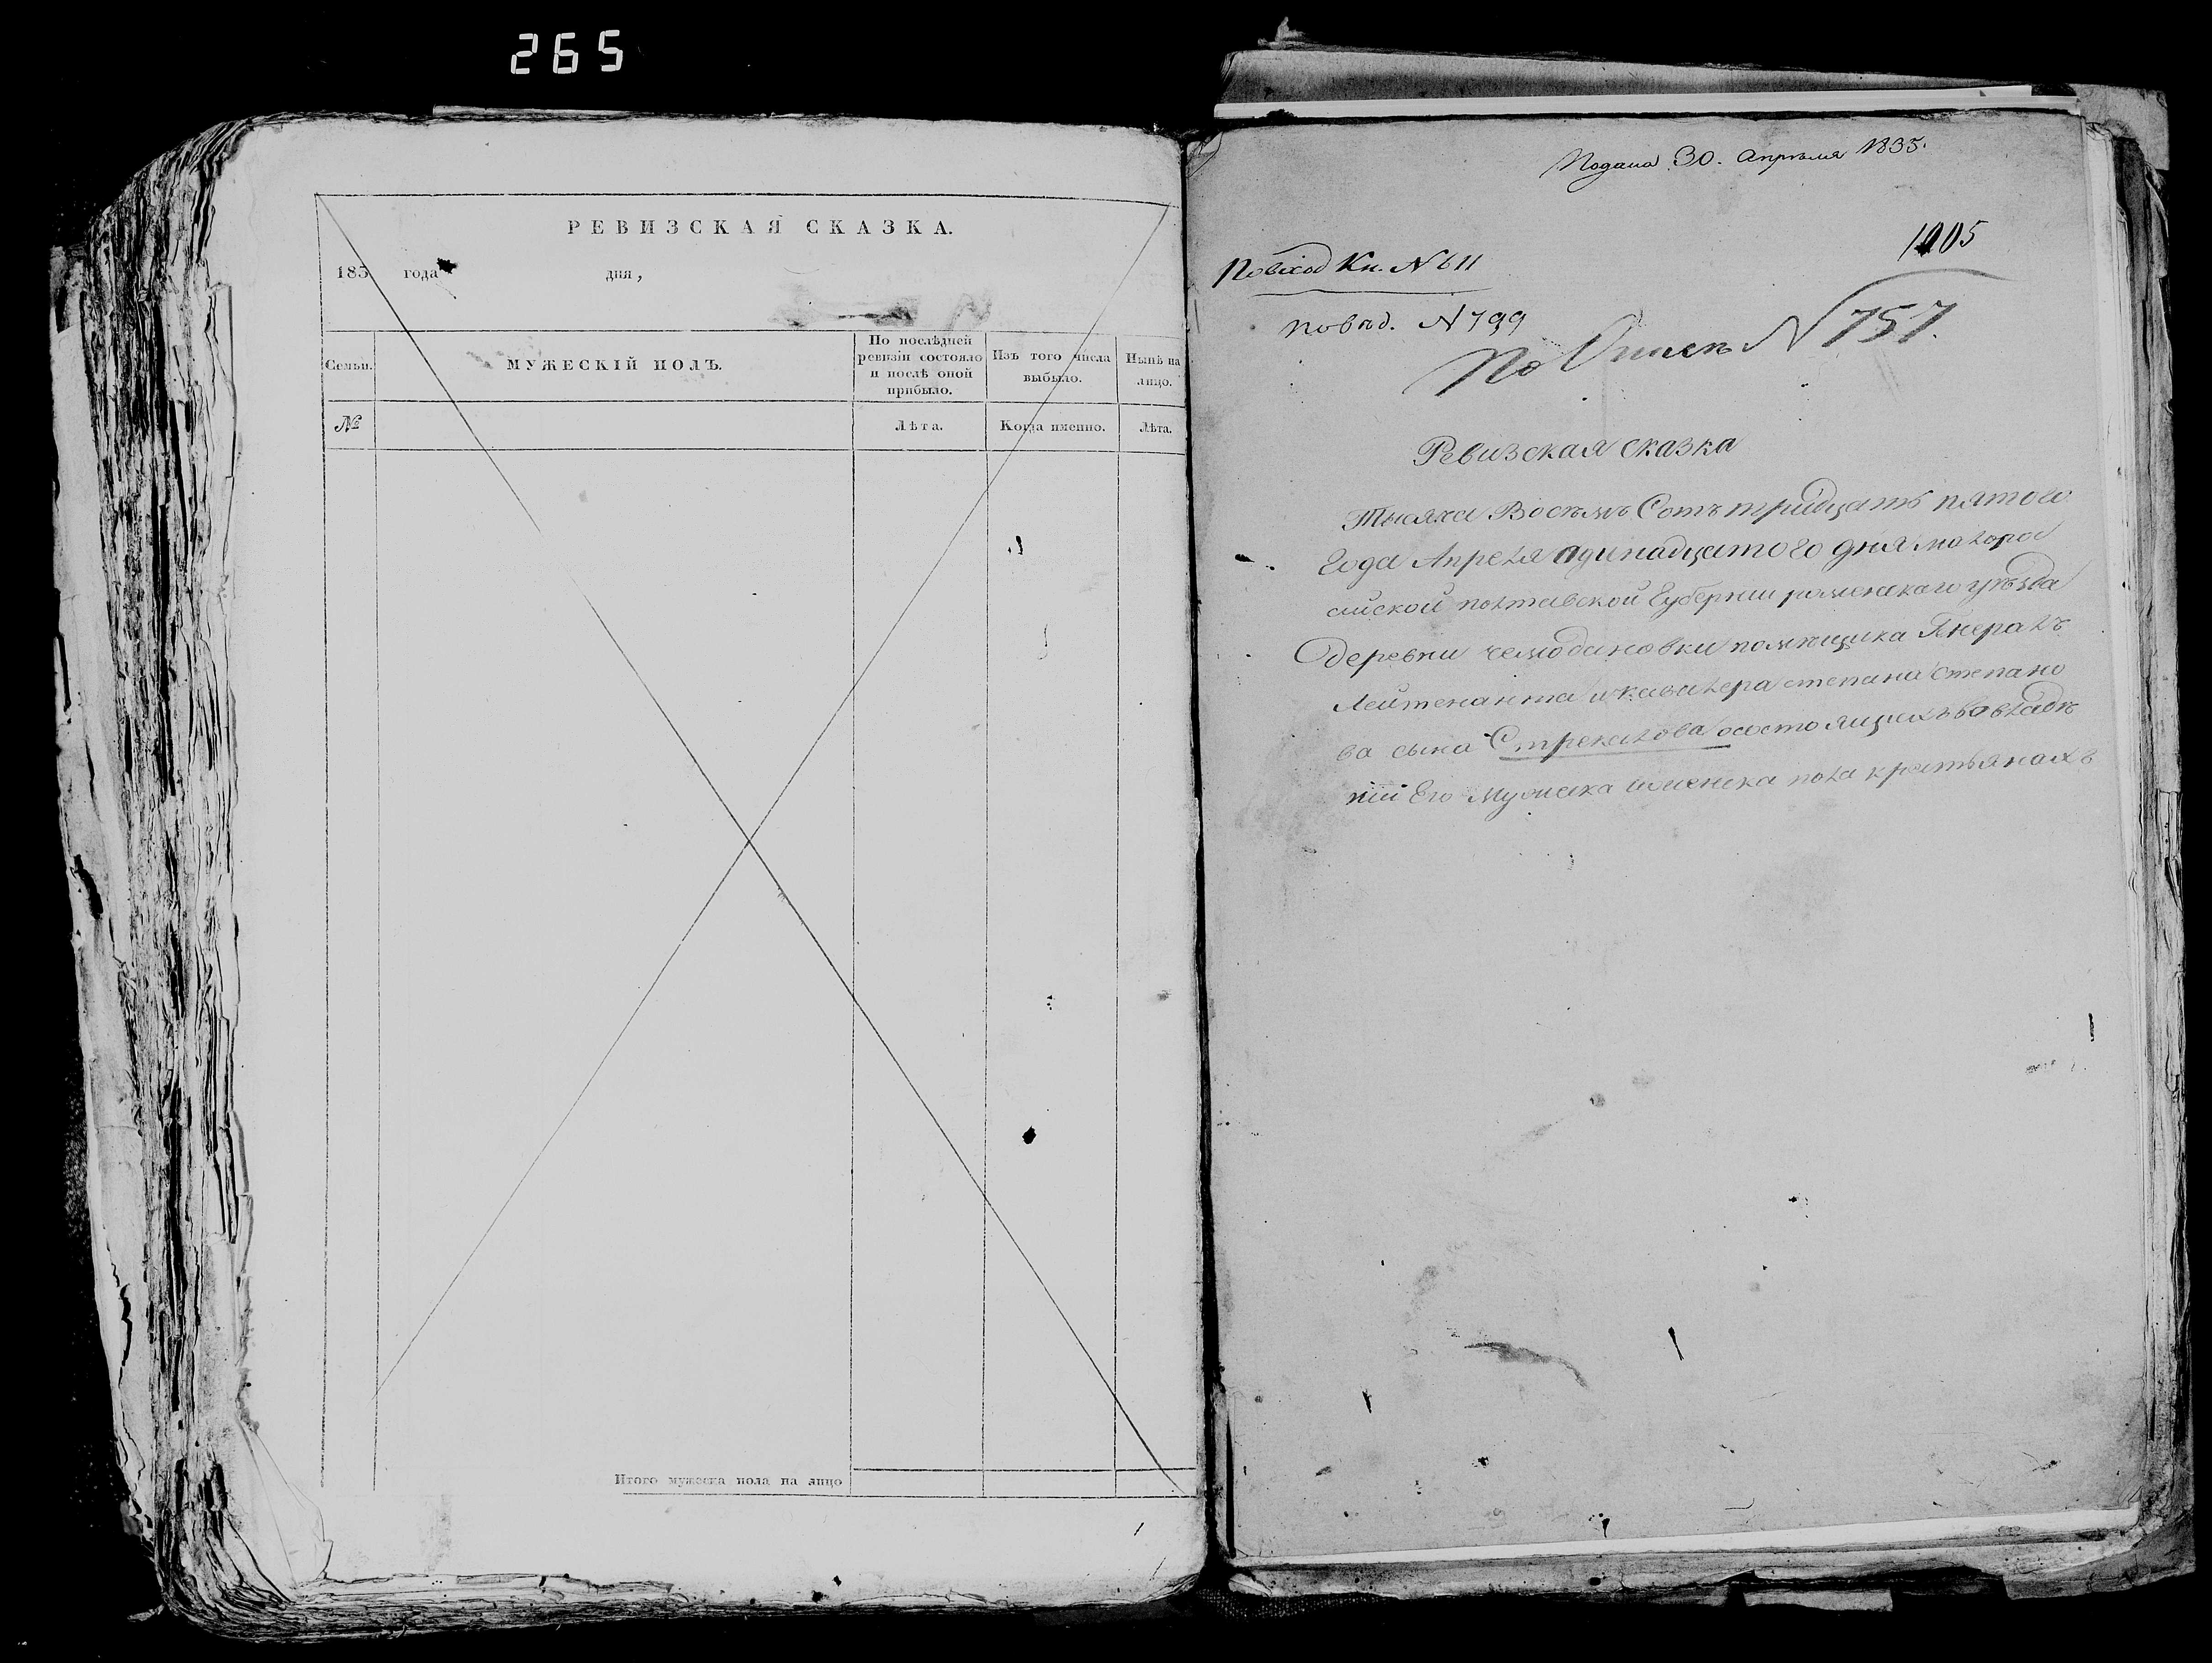 265
РЕВИЗСКАЯ СКАЗКА.
183 года дня,
Семьи.
МУЖЕСКІЙ ПОЛЪ.
По послѣдней
ревизіи состояло
и послѣ оной
прибыло.
Изъ того числа
выбыло.
Нынѣ на
лицо.
№
Лѣта.
Когда именно.
Лѣта.
Итого мужеска пола на лицо
Подана 30. Апрѣля 1835.
1005
По вход Кн. № 611
по вѣд. № 799
По Описи № 757.
Ревизская сказка
Тысяча Восемь Сотъ тридцать пятого
года Апреля адинадцатого дня малорос
сийской полтавской Губернии роменскаго уѣзда
деревни чемодановки помѣщика Янералъ
Лейтенанта и кавалера степана степано
ва сына Стрекалова осостоящихъ во владѣ
нии Его Мужеска и женска пола крстьянахъ